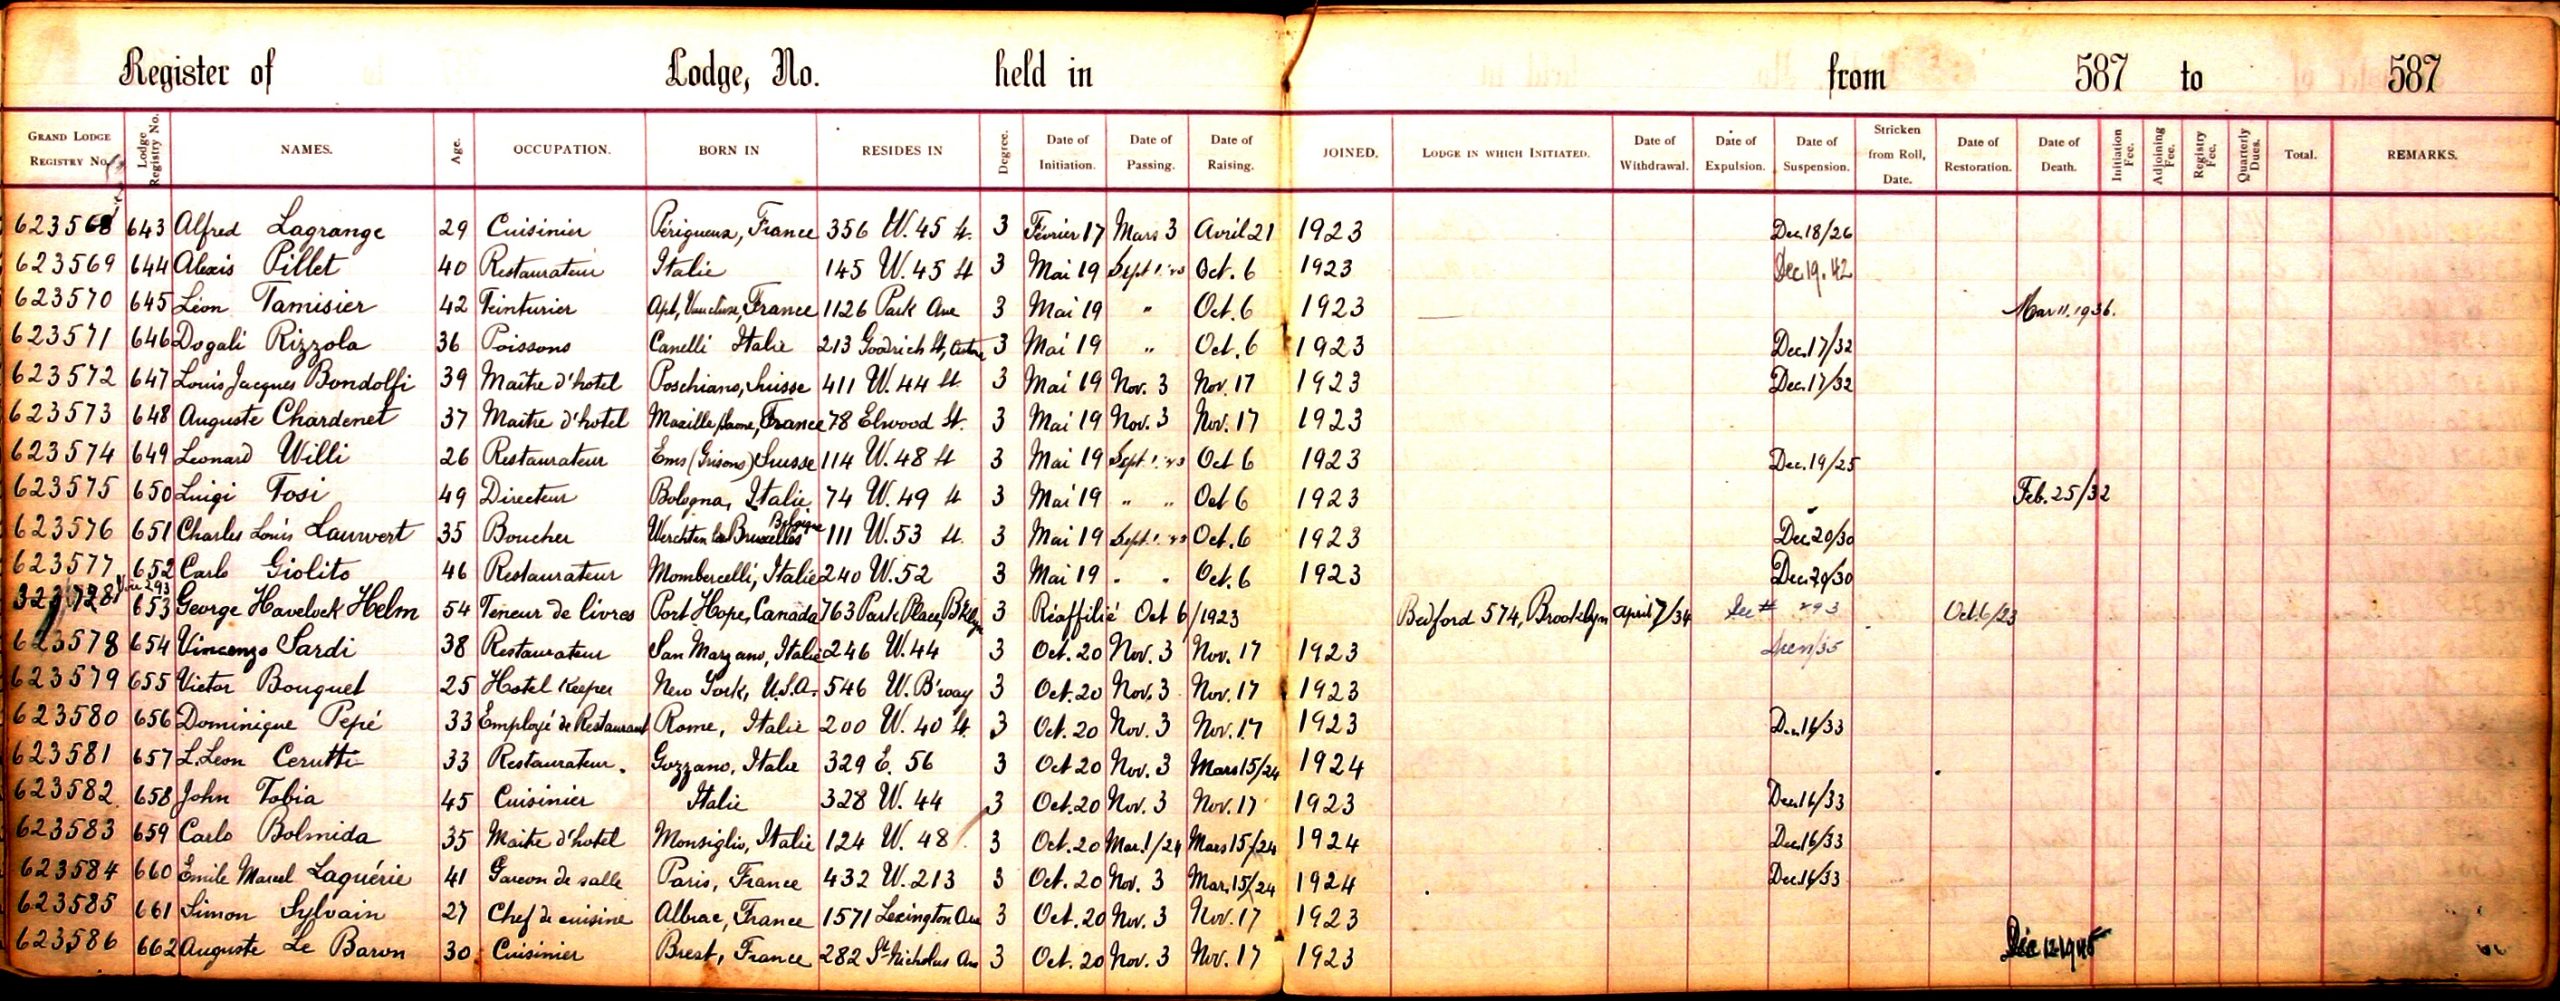 Register of Lodge, No. held in from 587 to 587
GRAND LODGE REGISTRY No. Lodge Registry No. NAMES. Age. OCCUPATION. BORN IN RESIDES IN Degree. Date of Initiation. Date of Passing. Date of Raising. JOINED. LODGE IN WHICH INITIATED. Date of Withdrawal. Date of Expulsion. Date of Suspension. Stricken from Roll, Date. Date of Restoration. Date of Death. Initiation Fee. Adjoining Fee. Registry Fee. Quarterly Dues. Total. REMARKS.
623568 643 Alfred Lagrange 29 Cuisinier Périgueux, France 356 W. 45 St. 3 Février 17 Mars 3 Avril 21 1923 Dec. 18/26
623569 644 Alexis Pillet 40 Restaurateur Italie 145 W. 45 St 3 Mai 19 Sept 1. 23 Oct. 6 1923 Dec. 19. 42
623570 645 Léon Tamisier 42 Teinturier Apt, Vaucluse, France 1126 Park Ave 3 Mai 19 " Oct. 6 1923 Mar 11. 1936.
623571 646 Dogali Rizzola 36 Poissons Canelli Italie 213 Goodrich St, 3 Mai 19 " Oct. 6 1923 Dec. 17/32
623572 647 Louis Jacques Bondolfi 39 Maître d'hotel Poschiano, Suisse 411 W. 44 St. 3 Mai 19 Nov. 3 Nov. 17 1923 Dec. 17/32
623573 648 Auguste Chardenet 37 Maitre d'hotel France 78 Elwood St. 3 Mai 19 Nov. 3 Nov. 17 1923
623574 649 Leonard Willi 26 Restaurateur Ems (Grisons) Suisse 114 W. 48 St 3 Mai 19 Sept 1. 23 Oct 6 1923 Dec. 19/25
623575 650 Luigi Tosi 49 Directeur Bologna, Italie 74 W. 49 St 3 Mai 19 " " Oct 6 1923 Feb. 25/32
623576 651 Charles Louis Lauwert 35 Boucher Werchten Bruxelles Belgique 111 W. 53 St. 3 Mai 19 Sept. 1. 23 Oct. 6 1923 Dec. 20/30
623577 652 Carlo Giolito 46 Restaurateur Mombercelli, Italie 240 W. 52 3 Mai 19 " " Oct. 6 1923 Dec. 20/30
653 George Havelock Helm 54 Teneur de livres Port Hope, Canada 763 Park Place, Bklyn 3 Réaffilié Oct 6/1923 Bedford 574, Brooklyn April 7/34 See # 293 Oct. 6/23
623578 654 Vincenzo Sardi 38 Restaurateur San Marzano, Italie 246 W. 44 3 Oct. 20 Nov. 3 Nov. 17 1923
623579 655 Victor Bouquet 25 Hotel Keeper New York, U.S.A. 546 W. B'way 3 Oct. 20 Nov. 3 Nov. 17 1923
623580 656 Dominique Pepé 33 Employé de Restaurant Rome, Italie 200 W. 40 St. 3 Oct. 20 Nov. 3 Nov. 17 1923 Dec. 16/33
623581 657 L. Léon Cerutti 33 Restaurateur. Gozzano, Italie 329 E. 56 3 Oct 20 Nov. 3 Mars 15/24 1924
623582 658 John Tobia 45 Cuisinier Italie 328 W. 44 3 Oct. 20 Nov. 3 Nov. 17 1923 Dec. 16/33
623583 659 Carlo Bolmida 35 Maitre d'hotel Monsiglio, Italie 124 W. 48 3 Oct. 20 Mar. 1/24 Mars 15/24 1924 Dec. 16/33
623584 660 Emile Marcel Laquérie 41 Garcon de salle Paris, France 432 W. 213 3 Oct. 20 Nov. 3 Mar. 15/24 1924 Dec. 16/33
623585 661 Simon Sylvain 27 Chef de cuisine Albiac, France 1571 Lexington Ave 3 Oct. 20 Nov. 3 Nov. 17 1923
623586 662 Auguste Le Baron 30 Cuisinier Brest, France 282 St Nicholas Ave 3 Oct. 20 Nov. 3 Nov. 17 1923